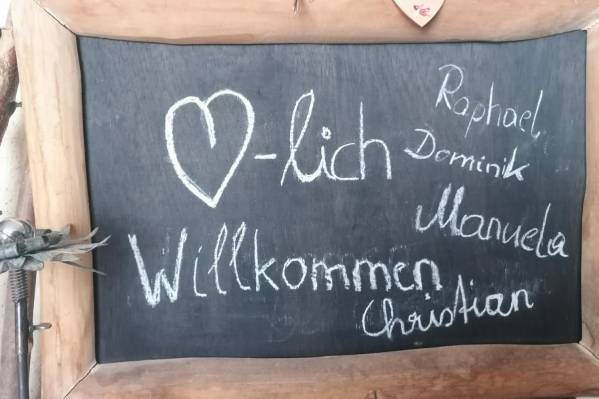 ♡-lich
Willkommen
Raphael,
Dominik
Manuela
Christian